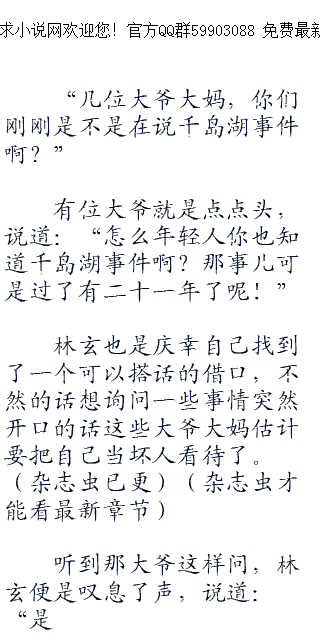 求小说网欢迎您！官方QQ群59903088 免费最新
“几位大爷大妈，你们
刚刚是不是在说千岛湖事件
啊？”
有位大爷就是点点头，
说道：“怎么年轻人你也知
道千岛湖事件啊？那事儿可
是过了有二十一年了呢！”
林玄也是庆幸自己找到
了一个可以搭话的借口，不
然的话想询问一些事情突然
开口的话这些大爷大妈估计
要把自己当坏人看待了。
（杂志虫已更）（杂志虫才
能看最新章节）
听到那大爷这样问，林
玄便是叹息了声，说道：
“是